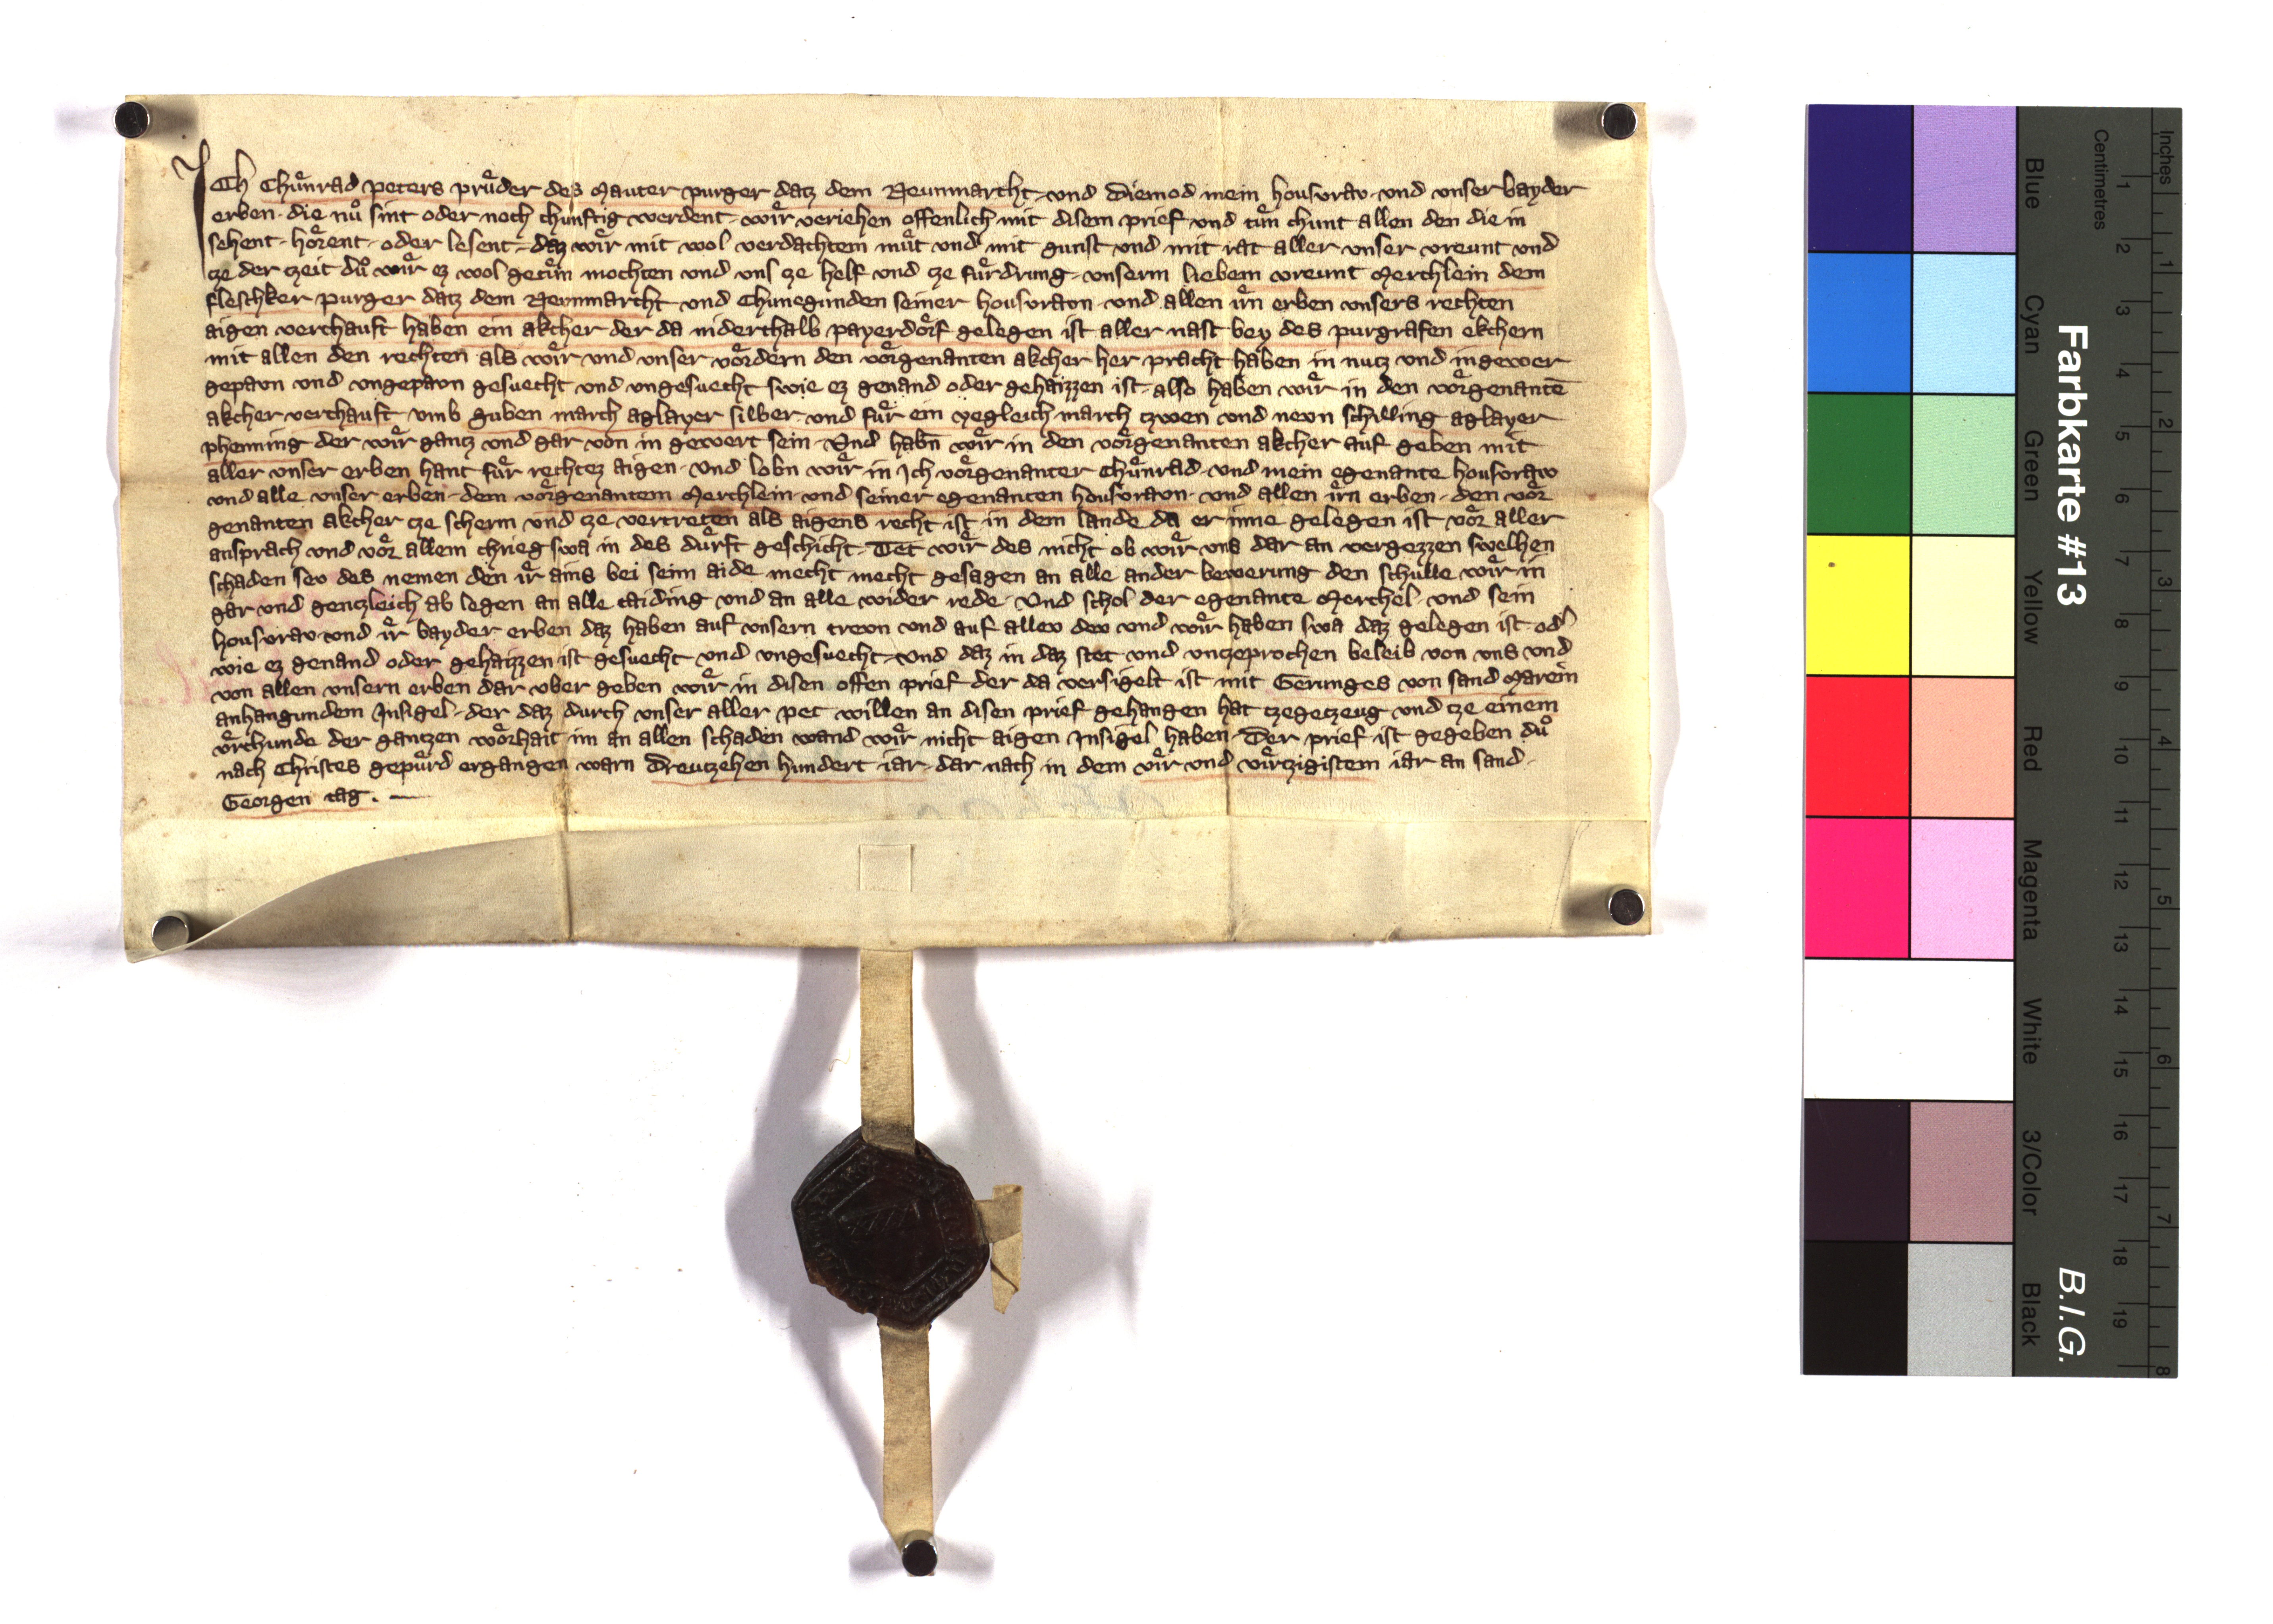 Ich Chuͦnrad Peters pruͦder des Mauter purger datz dem Neunmarcht und Diemod mein housvrav und unser bayder
erben die nuͦ sint oder noch chunftig werdent wiͦr veriehen offenlich mit disem prief und tuͦn chunt allen den die in
sehent hoͦrent oder lesent daz wiͦr mit wol verdachtem muͦt und mit gunst und mit rat aller unser vreunt und
cze der czeit duͦ wiͦr ez wol getuͦn mochten und uns cze helf und cze fuͦrdrung unserm liebem vreunt Merchlein dem
fleschker purger datz dem Neunmarcht und Chunegunden seiner housvravn und allen iͦrn erben unsers rechten
aigen verchauft haben ein akcher der da niderthalb payerdoͦrf gelegen ist aller nast bey des purgrafen ekchern
mit allen den rechten als wiͦr und unser voͦrdern den voͦrgenanten akcher her pracht haben in nutz und in gewer
gepavn und ungepavn gesuecht und ungesuecht swie ez genand oder gehaizzen ist also haben wiͦr in den voͦrgenantē
akcher verchauft umb guben march aglayer silber und fuͦr ein yegleich march czwen und nevn schilling aglayer
phenning der wiͦr gantz und gar von in gewert sein Und habn wiͦr in den voͦrgenanten akcher auf geben mit
aller unser erben hant fuͦr rechtez aigen Und lobn wiͦr in Ich voͦrgenanter Chuͦnrad und mein egenante housvraw
und alle unser erben dem voͦrgenantem Merchlein und seiner egenanten housvravn und allen iͦrn erben den voͦr
genanten akcher cze scherm und cze vertreten als aigens recht ist in dem lande da er inne gelegen ist voͦr aller
ansprach und voͦr allem chrieg swa in des duͦrft geschicht Tet wiͦr des nicht ob wiͦr uns dar an vergezzen swelhen
schaden sev des nemen den iͦr ains bei seim aide mecht mecht gesagen an alle ander bewerung den schulle wiͦr in
gar und genczleich ab legen an alle taiding und an alle wider rede Und schol der egenante Merchel und sein
housvrav und iͦr bayder erben daz haben auf unsern trevn und auf allev dev und wiͦr haben swa daz gelegen ist od
wie ez genand oder gehaizzen ist gesuecht und ungesuecht Und daz in daz stet und unczeprochen beleib von uns und
von allen unsern erben dar uber geben wiͦr in disen offen prief der da versigelt ist mit Gerunges von sand Marein
anhangundem Insigel der daz durch unser aller pet willen an disen prief gehangen hat czegeczeug und cze einem
uͦrchunde der gantzen woͦrhait im an allen schaden wand wiͦr nicht aigen Insigel haben Der prief ist gegeben duͦ
nach Christes gepuͦrd ergangen warn Dreuczehen hundert iar dar nach in dem viͦr und viͦrczigistem iar an sand
Georgen tag.
Farbkarte #13
B.I.G.
Centimetres
Inches
Blue
Cyan
Green
Yellow
Red
Magenta
White
3/Color
Black
1 2 3 4 5 6 7 8 9 10 11 12 13 14 15 16 17 18 19
1 2 3 4 5 6 7 8